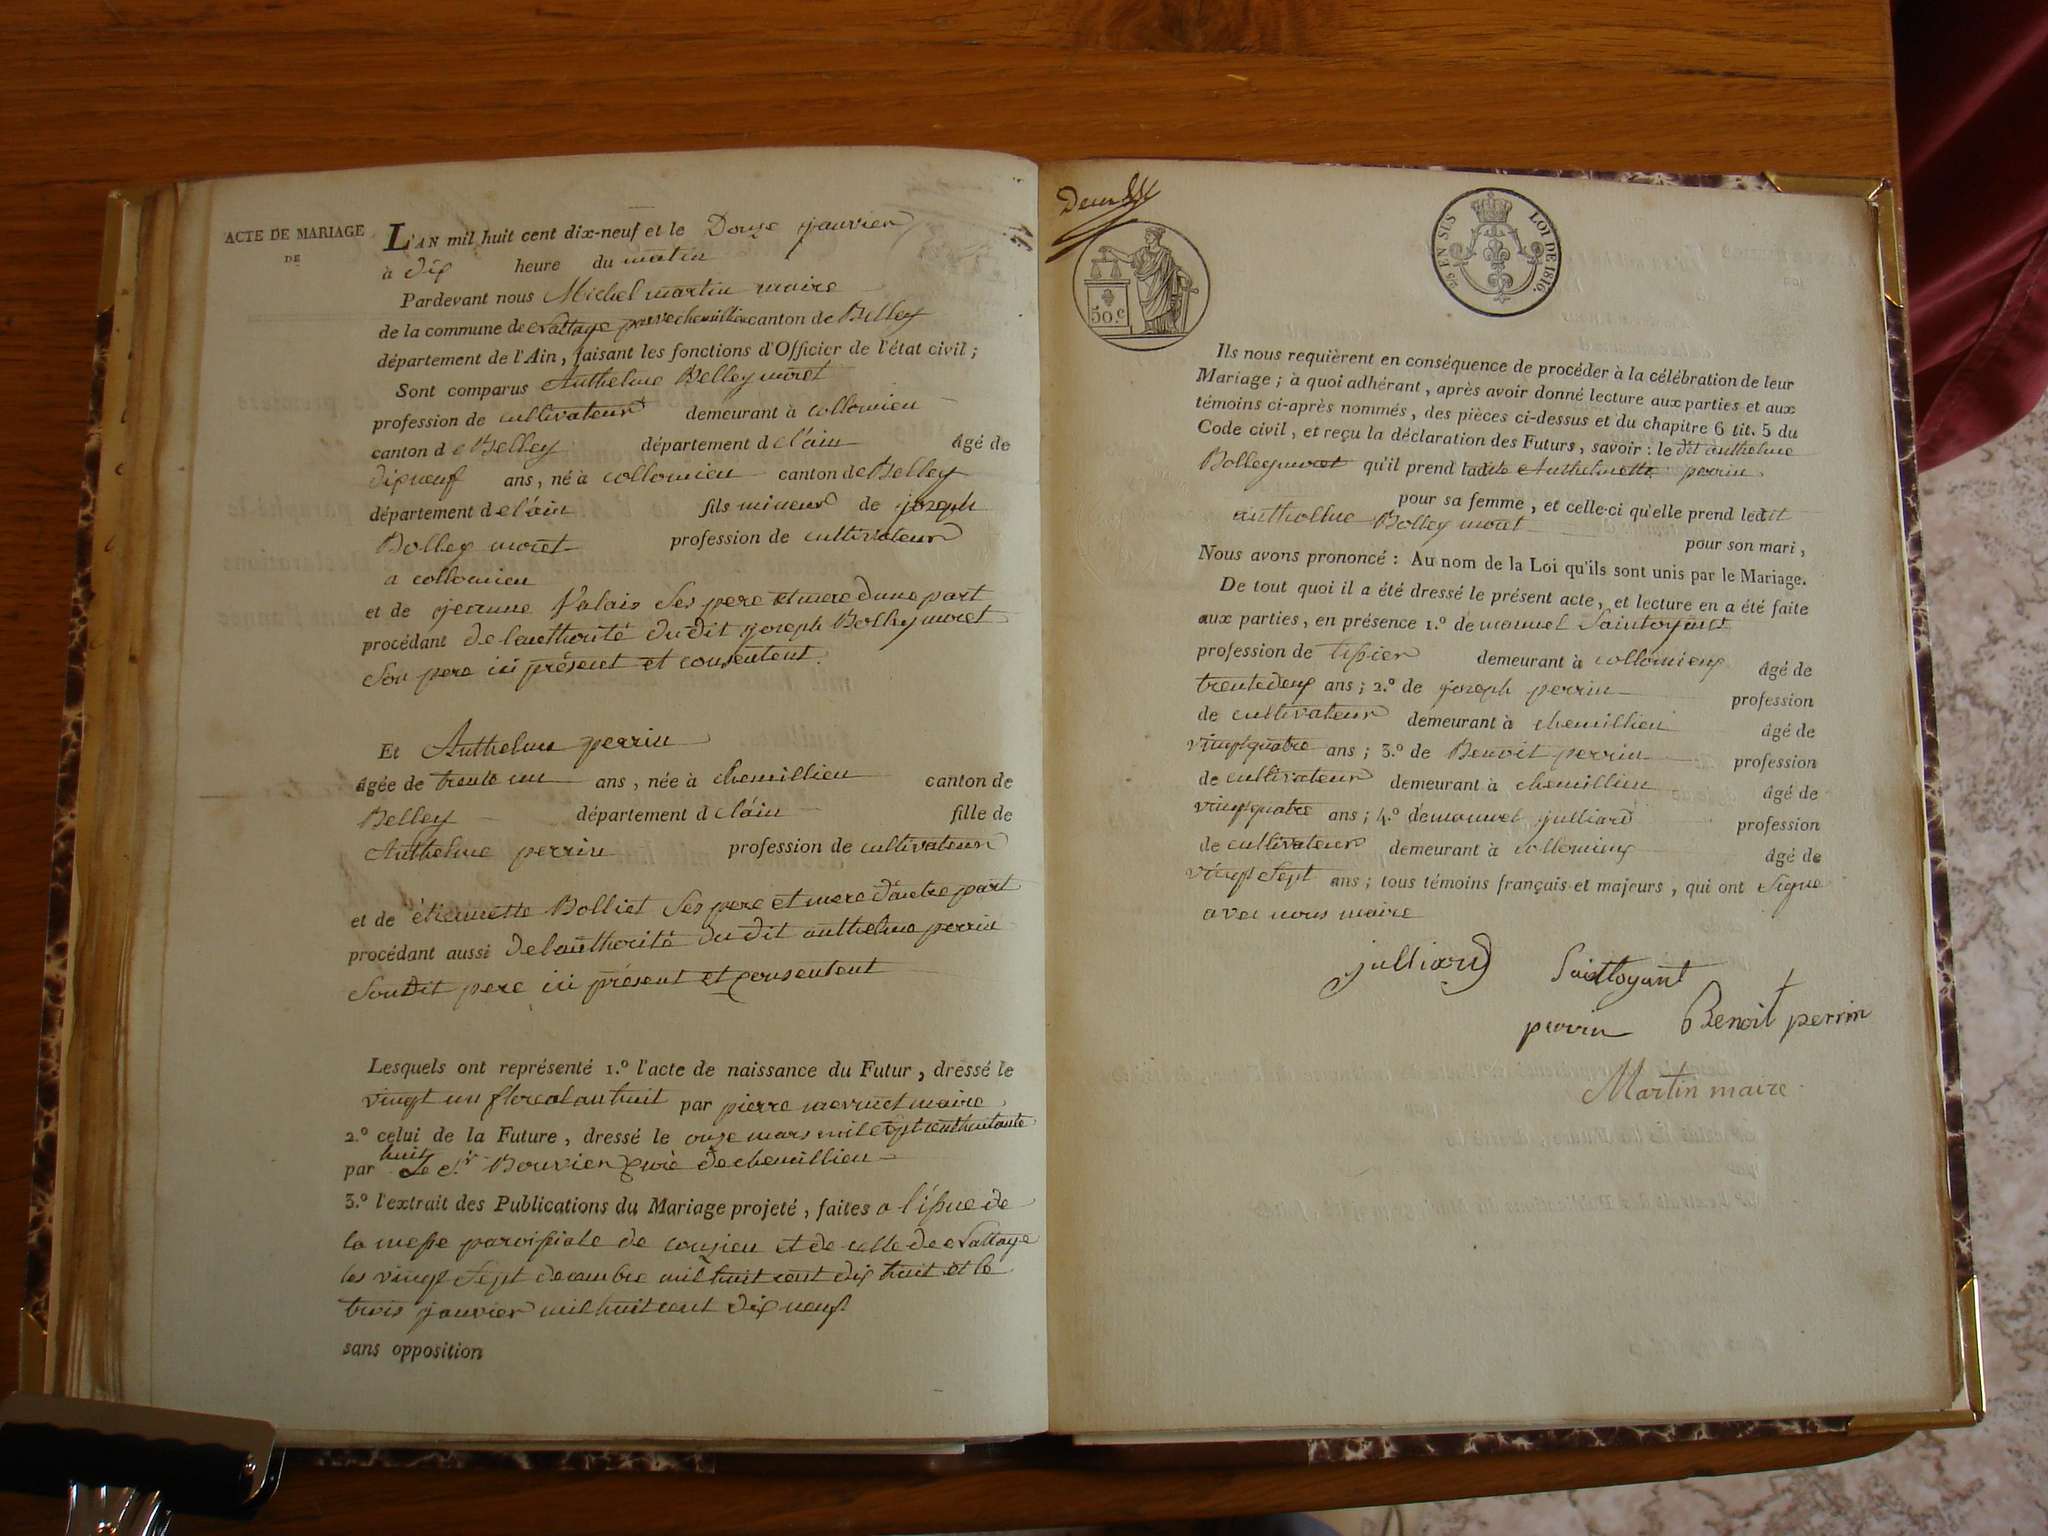 ACTE DE MARIAGE
DE
L'AN mil huit cent dix-neuf et le Douze janvier
à dix heure du matin
Pardevant nous Michel martin maire
de la commune de canton de Belley
département de l'Ain, faisant les fonctions d'Officier de l'état civil ;
Sont comparus Anthelme Bolley moret
profession de cultivateur demeurant à collomieu
canton de Belley département de l'ain âgé de
dixneuf ans, né à collomieu canton de Belley
département de l'ain fils mineur de joseph
Bolley moret profession de cultivateur
a collomieu
et de jeanne Valais Ses pere et mere dune part
procédant de lauthorité du dit joseph Bolley moret
Son pere ici présent et consentent
Et Anthelme perrin
âgée de trente un ans, née à chemillieu canton de
Belley département d l'áin fille de
Anthelme perrin profession de cultivateur
et de étiennette Bolliet Ses pere et mere d'autre part
procédant aussi de lauthorité du dit anthelme perrin
Son dit pere ici présent et consentent
Lesquels ont représenté 1.º l'acte de naissance du Futur, dressé le
vingt un floreal an huit par pierre maire
2.º celui de la Future, dressé le onze mars mil sept cent huitante
huit
par Le S.r Bouvier curé de chemillieu
3.º l'extrait des Publications du Mariage projeté, faites a l'issue de
la messe paroissiale de conzieu et de celle de
les vingt Sept decembre mil huit cent dix huit et le
trois janvier mil huit cent dix neuf
sans opposition
50.c
25 EN SUS LOI DE 1816.
Ils nous requièrent en conséquence de procéder à la célébration de leur
Mariage ; à quoi adhérant, après avoir donné lecture aux parties et aux
témoins ci-après nommés, des pièces ci-dessus et du chapitre 6 tit. 5 du
Code civil, et reçu la déclaration des Futurs, savoir : le dit anthelme
Bolley moret qu'il prend ladite Anthelmette perrin
pour sa femme, et celle-ci qu'elle prend ledit
anthelme Bolley moret pour son mari,
Nous avons prononcé : Au nom de la Loi qu'ils sont unis par le Mariage.
De tout quoi il a été dressé le présent acte, et lecture en a été faite
aux parties, en présence 1.º de manuel Saintoyant
profession de tissier demeurant à collomieux âgé de
trentedeux ans ; 2.º de joseph perrin profession
de cultivateur demeurant à chemillieu âgé de
vingtquatre ans ; 3.º de Benoit perrin profession
de cultivateur demeurant à chemillieu âgé de
vingtquatre ans ; 4.º de manuel julliard profession
de cultivateur demeurant à collomieux âgé de
vingt Sept ans ; tous témoins français et majeurs, qui ont Signé
avec nous maire
julliard Saintoyant
perrin Benoit perrin
Martin maire